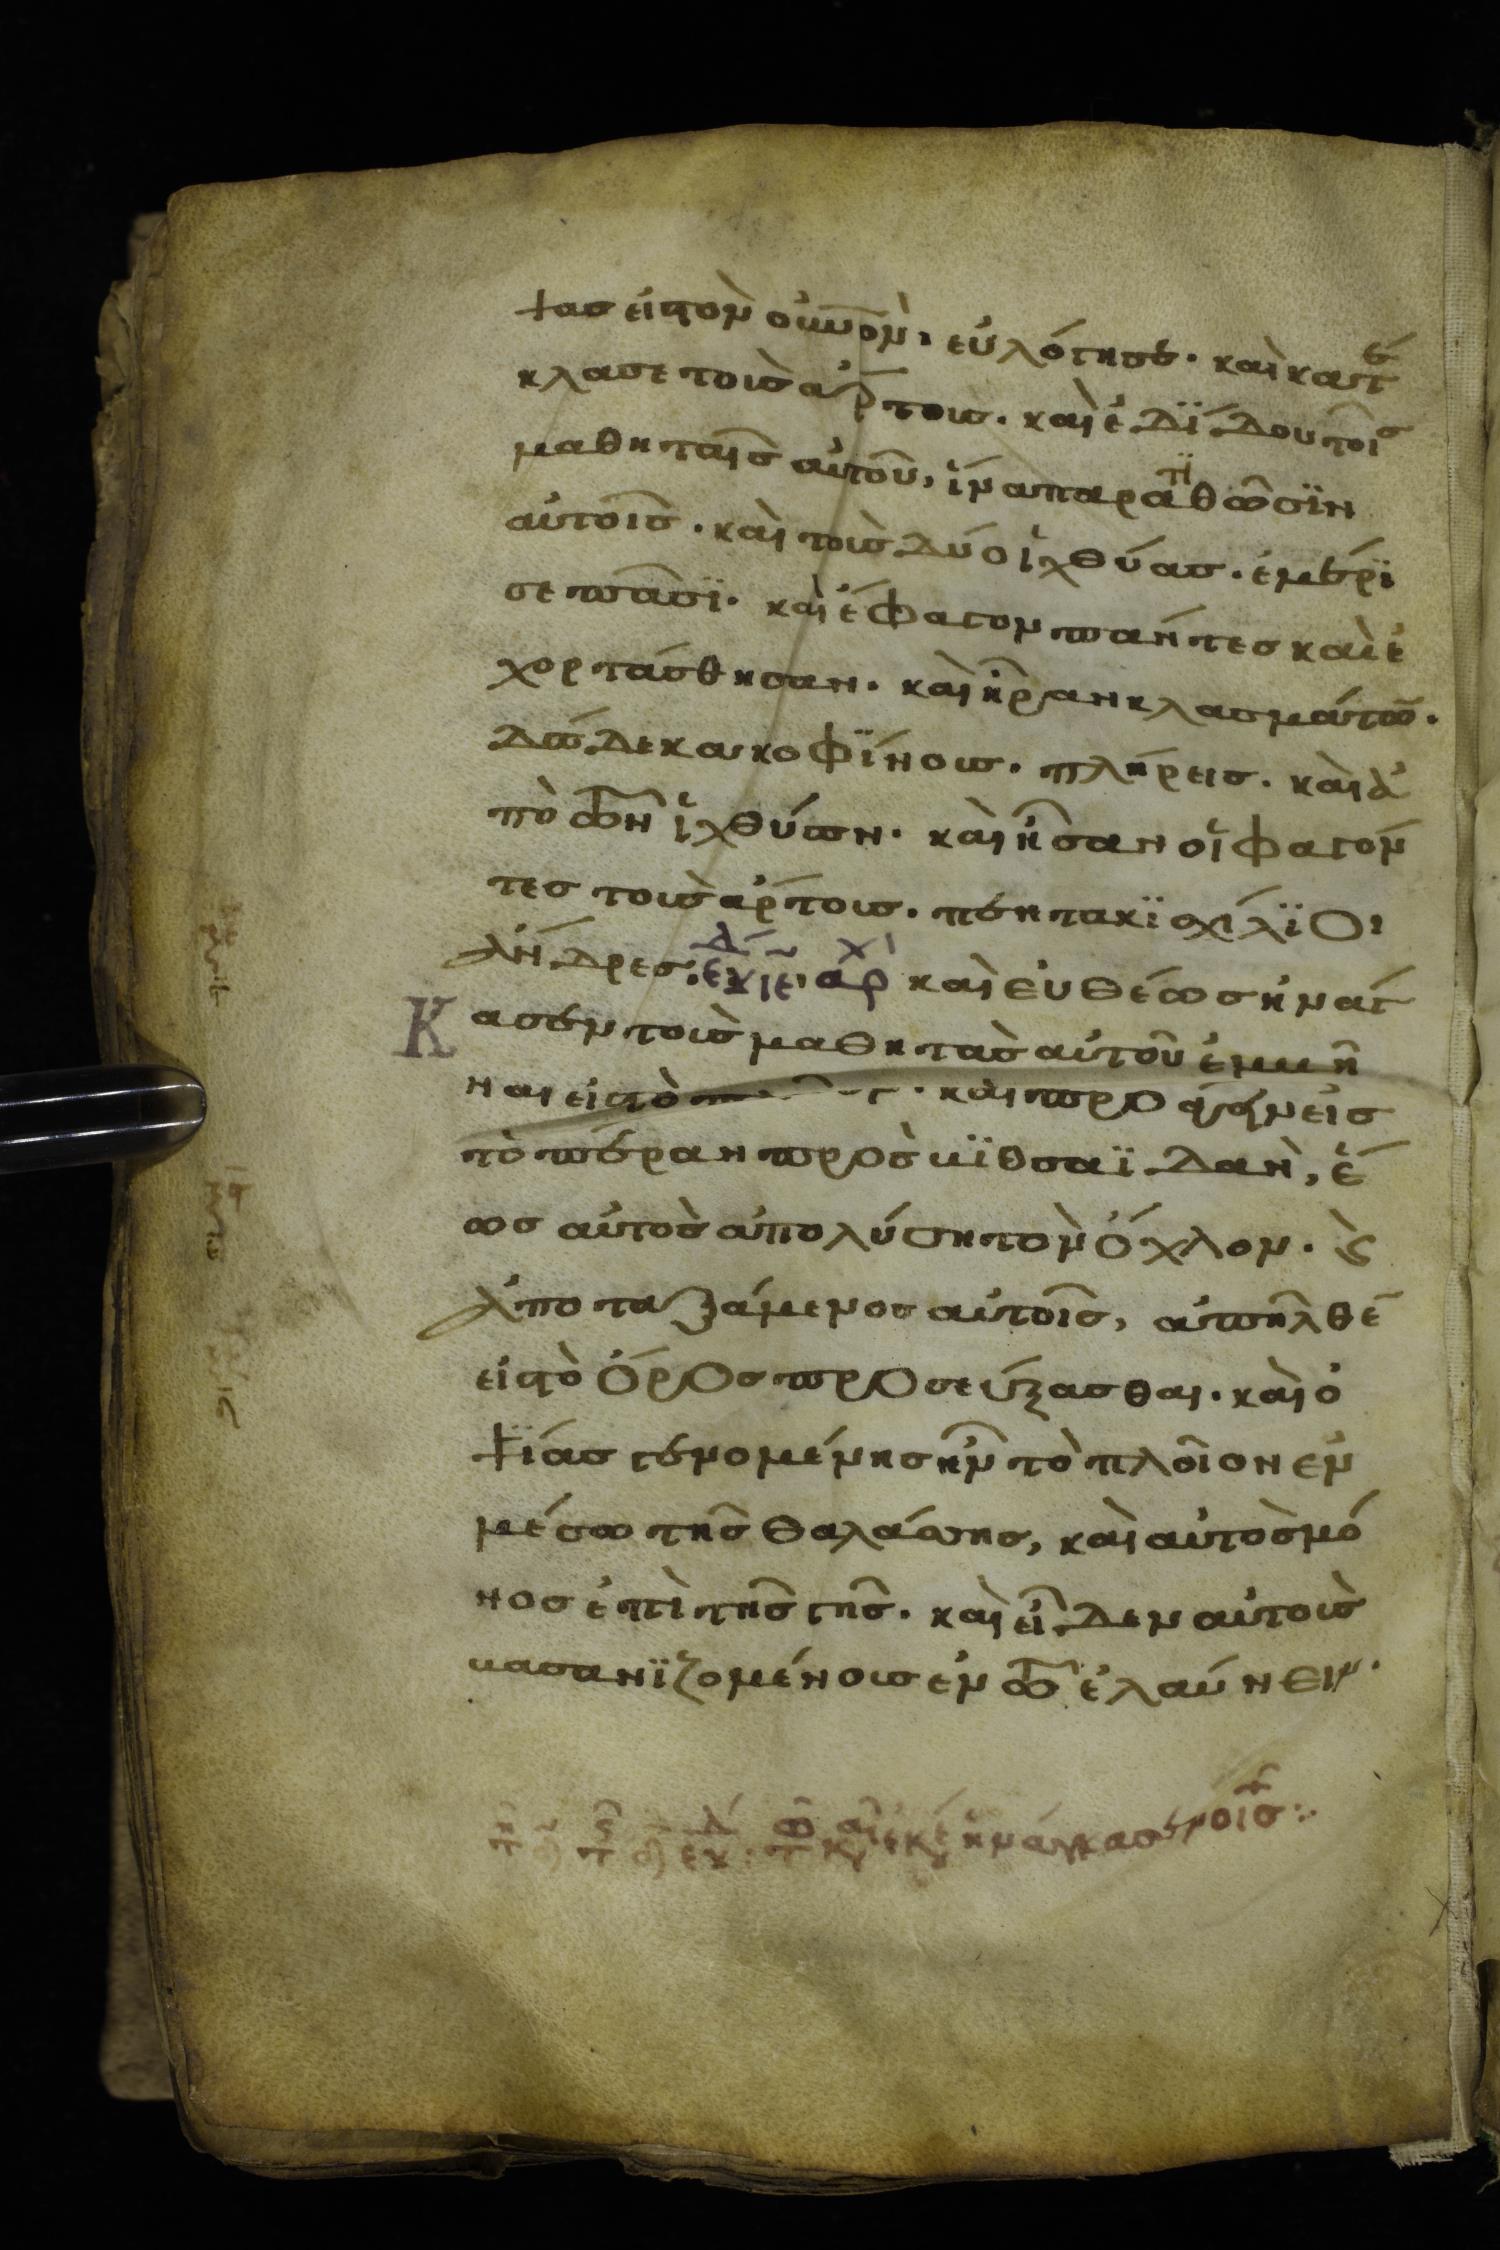 ψας εἰς τὸν οὐ̅νο̅ν, εὐλόγησε. καὶ κατέ
κλασε τοὺς ἄρτους. καὶ ἐδίδου τοῖς
μαθηταῖς αὐτοῦ, ἵνα παρατιθῶσϊν
αὐτοῖς. καὶ τοὺς δύο ἰχθύας. ἐμέρϊ
σε πᾶσϊ. καὶ ἔφαγον πάντες καὶ ἐ
χορτάσθησαν. καὶ ἦραν κλασμάτω̅.
δώδεκα κοφΐνους. πλήρεις. καὶ ἀ
πὸ τῶν ἰχθύων. καὶ ἦσαν οἱ φαγόν
τες τοὺς ἄρτους. πεντακϊσχίλϊοι
ἄνδρες. καὶ εὐθέως ἠνάγ
Κασεν τοὺς μαθητὰς αὐτοῦ ἐμβῆ
ναι εἰς τὸ καὶ προάγειν εἰς
τὸ πέραν πρὸς βϊθσαϊδὰν, ἕ
ως αὐτὸς ἀπολύση τὸν ὄχλον. ϗ
ἀποταξάμενος αὐτοῖς, ἀπῆλθε̅
εἰς τὸ ὄρος προσεύξασθαι. καὶ ὀ
ψΐας γενομένης ἦν τὸ πλοῖον ἐν
μέσω τῆς θαλάσσης, καὶ αὐτὸς μό
νος ἐπὶ τῆς γῆς. καὶ εἶδεν αὐτοὺς
βασανϊζομένους ἐν τῶ ἐλαύνειν.